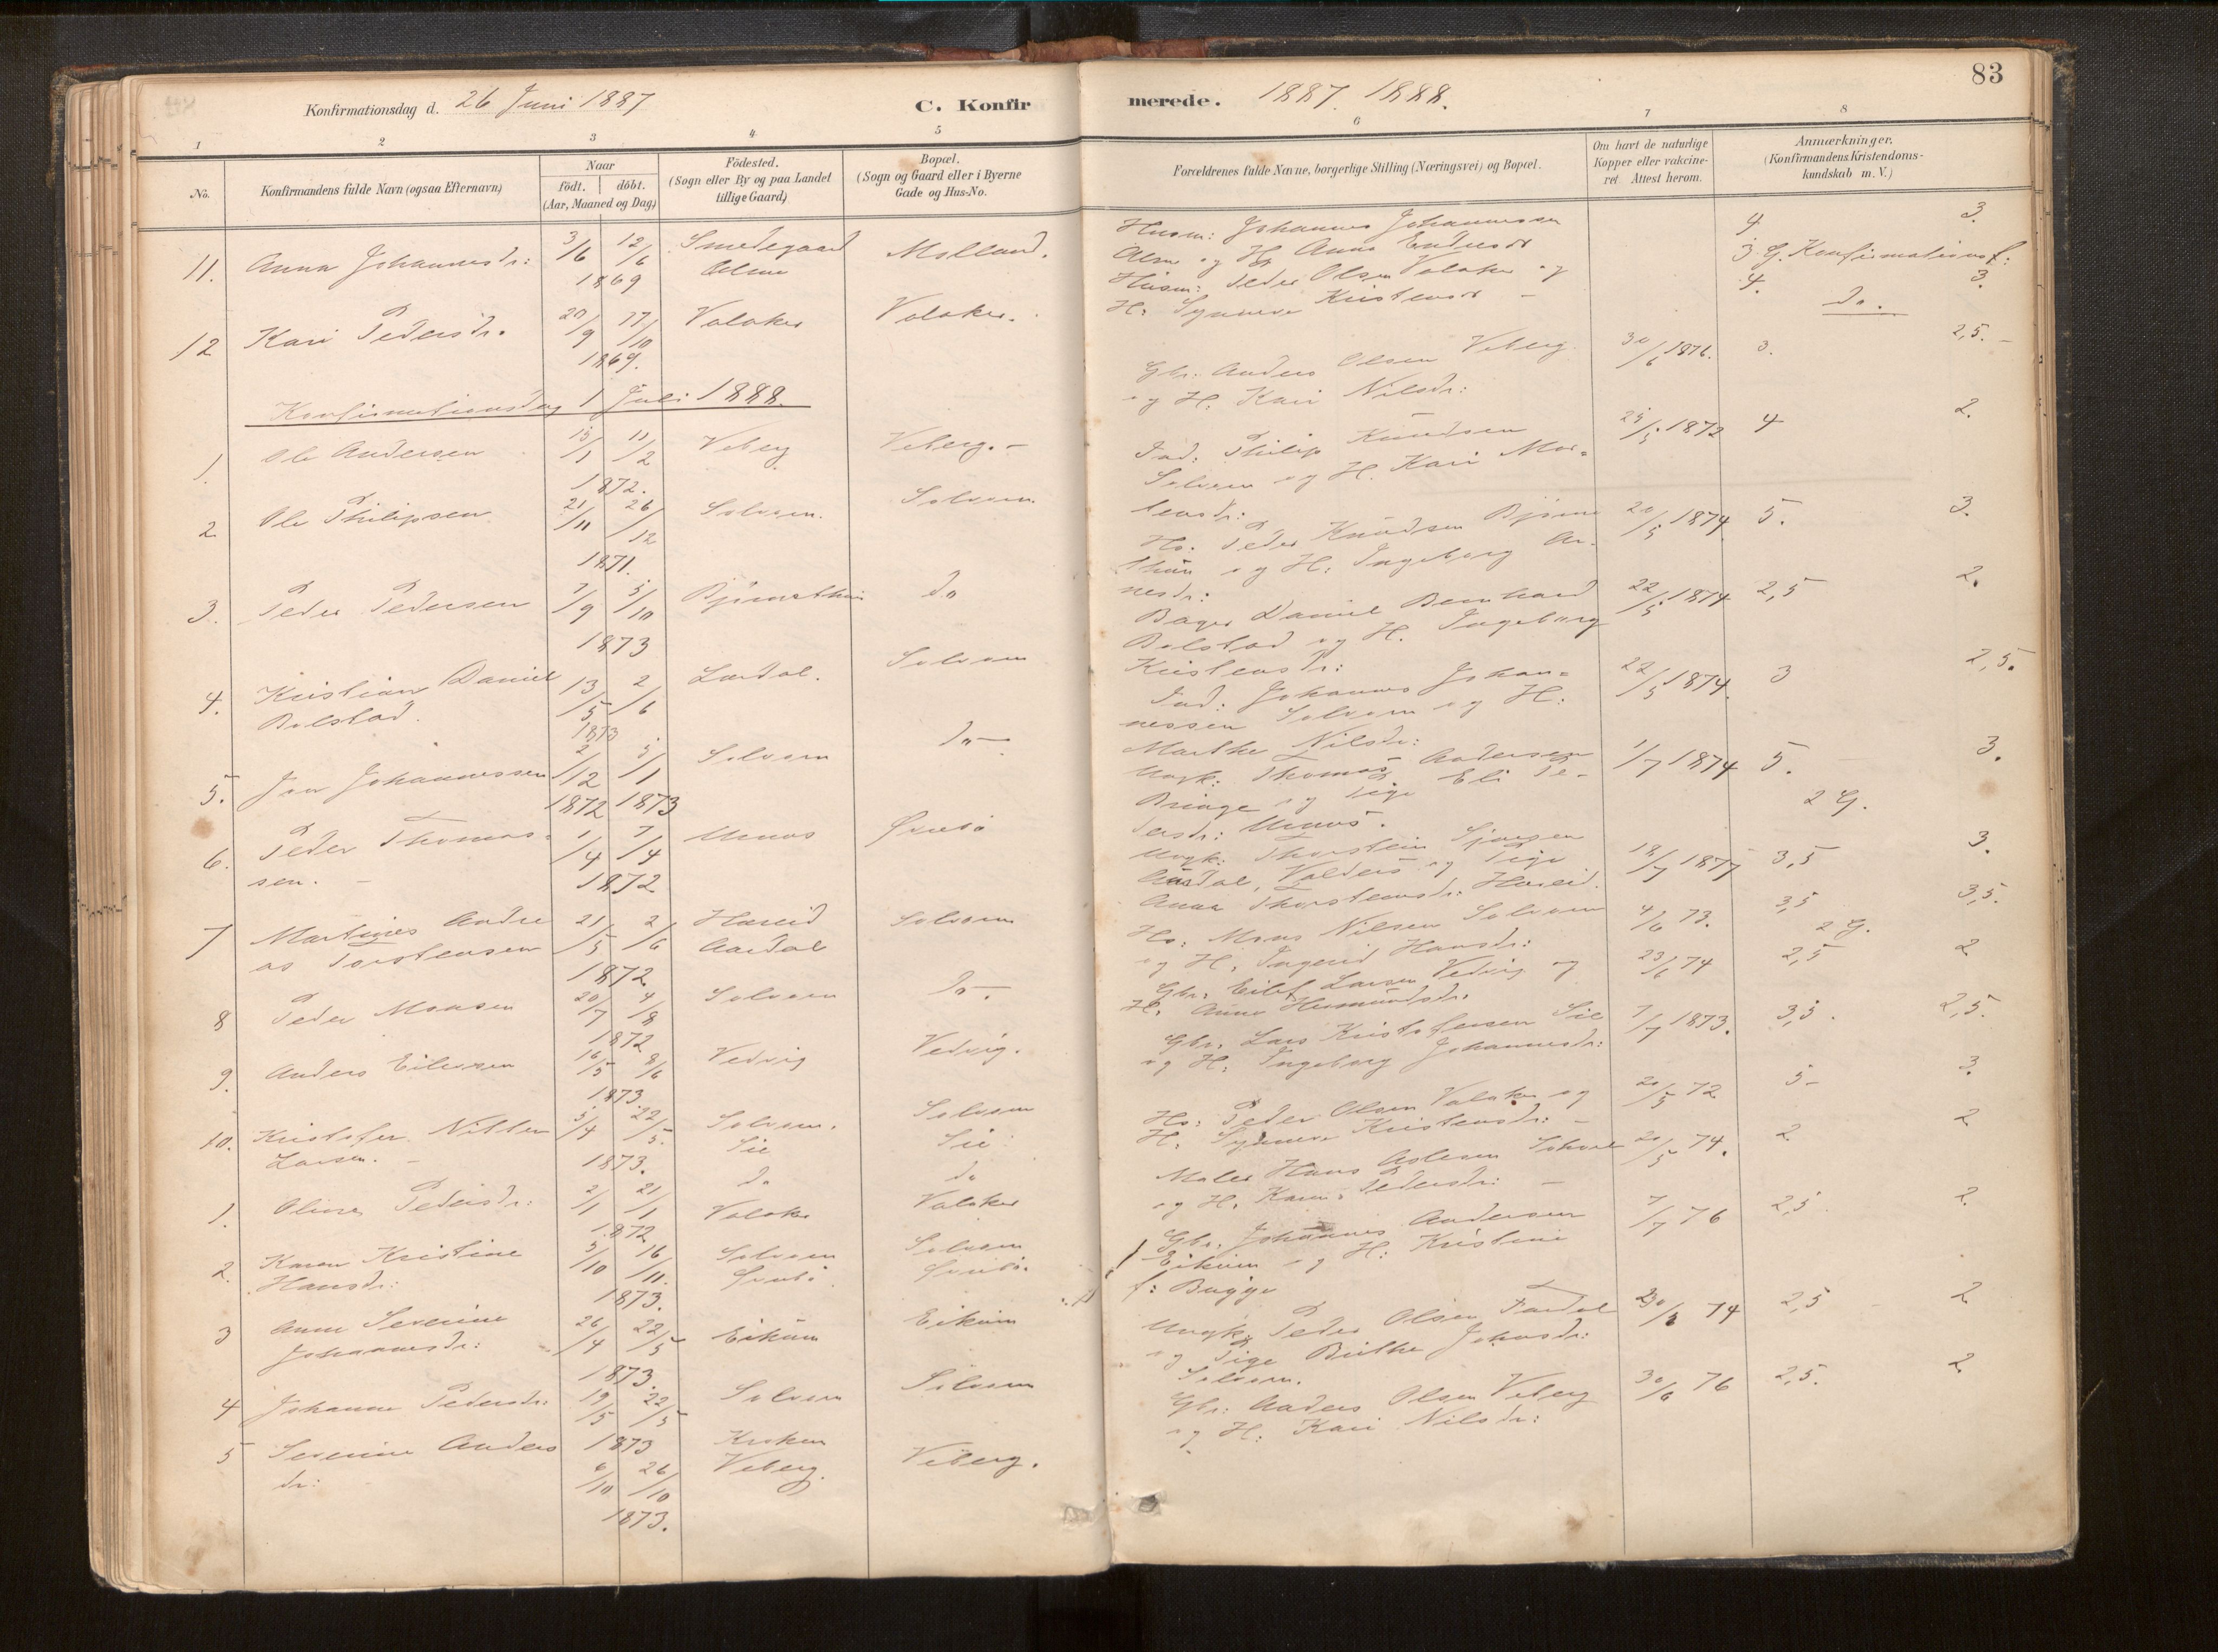 83
Konfirmationsdag d. 26 Juni 1887
C. Konfirmerede. 1887. 1888.
1 2 3 4 5 6 7 8
No.
Konfirmandens fulde Navn (ogsaa Efternavn)
Naar
födt. döbt.
(Aar, Maaned og Dag)
Födested.
(Sogn eller By og paa Landet
tillige Gaard)
Bopæl.
(Sogn og Gaard eller i Byerne
Gade og Hus-No.
Forældrenes fulde Navne, borgerlige Stilling (Næringsvei) og Bopæl.
Om havt de naturlige
Kopper eller vakcine-
ret. Attest herom.
Anmærkninger.
(Konfirmandens Kristendoms-
kundskab m. V.)
11. Anna Johannesdr: 3/6 12/6 Smedegaard Molland.
1869 Alme
Husm: Johannes Johannessen 4. 3.
Alme og H Anna Endresdr 3 G. Konfirmationsf:
12 Kari Pedersdr. 20/9 17/10 Valaker Valaker.
1869.
Husm: Peder Olsen Valaker og 4. 3.
H: Synneve Kristensdr - do.
Konfirmationsdag 1 Juli 1888.
1. Ole Andersen 15/1 11/2 Veberg Veberg. -
1872.
Gbr. Anders Olsen Veberg 30/6 1876. 3. 2,5. -
og H. Kari Nilsdr:
2. Ole Philipsen 21/11 26/12 Solvorn. Solvorn
1871.
Ind: Philip Knudsen 25/5 1872 4 2.
Solvorn og H. Kari Mor-
tensdr:
3. Peder Pedersen 7/9 5/10 Bjørnethun do
1873
Hs. Peder Knudsen Bjørne 20/5 1874 5. 3.
thun og H: Ingeborg Ar-
nesdr:
4. Kristian Daniel 13/5 2/6 Lærdal. Solvorn
Bolstad. 1873
Bager Daniel Bernhard 22/5 1874 2,5 2.
Bolstad og H. Ingeborg
Kristensdr:
5. Jon Johannessen 2/12 5/1 Solvorn do -
1872 1873
Ind: Johannes Johan- 22/5 1874. 3 2,5.
nessen Solvorn og H:
Marthe Nilsdr:
6. Peder Thomas- 1/4 7/4 Urnæs
sen. - 1872
Ungk: Thomas Andersen 1/7 1874 5. 3.
Bringe og Pige Eli Pe- 2 G.
dersdr: Urnæs.
7 Martinus Andre 21/5 2/6 Hareid Solvorn
as Torstensen 1872 Aardal
Ungk: Thorstein 18/7 1877 3,5 3.
Valders og Pige
Anna Thorstensdr: Hareid.
8 Peder Monsen 20/7 4/8 Solvorn do -.
1872
Hs: Mons Nilsen Solvorn 4/6 73. 3,5 3,5.
og H. Ingerid Hansdr: 2 G.
9. Anders Eilevsen 16/5 8/6 Vedvig Vedvig.
1873.
Gbr. Eilef Larsen Vedvig og 23/6 74 2,5 2
H. Anna Hermundsdr.
10. Kristofer Nitter 5/4 22/5. Solvorn. Solvorn
Larsen. - 1873. Sie Sie
Gbr. Lars Kristofersen Sie 7/7 1873. 3,5. 2,5.
og H. Ingeborg Johannesdr:
1. Oline Pedersdr: 2/1 21/1 do do
1872 Valaker Valaker
Hs: Peder Olsen Valaker og 20/5 72 5- 3.
H. Synneve Kristensdr: -
2. Karen Kristine 5/10 16/11. Solvorn Solvorn
Hansdr: 1873.
Maler Hans 20/5 74. 2. 2
og H. Karen Pedersdr: -
3 Anne Severine 26/4 22/5 Eikum Eikum
Johannesdr: 1873.
Gbr. Johannes Andersen 7/7 76 2,5. 2.
Eikum og H: Kristine
f: Bugge
4 Johanne Pedersdr: 19/5 22/5 Solvorn Solvorn
1873
Ungk: Peder Olsen 74 2,5 2
og Pige Brithe Johnsdr:
Solvorn.
5 Severine Anders 6/10 26/10 Kroken Veberg.
dr: 1873. Veberg.
Gbr: Anders Olsen Veberg 30/6 76 2,5. 2
og H: Kari Nilsdr: